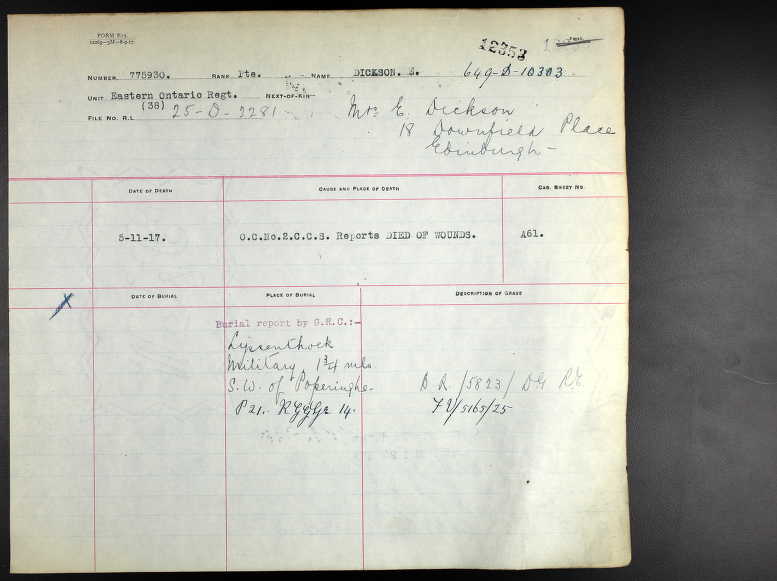 FORM R15.
12353
NUMBER 775930. RANK Pte. NAME DICKSON. S. 649-D-10303
UNIT Eastern Ontario Regt. NEXT-OF-KIN
(38)
FILE NO. R.L. 25-D-2281
Mrs E. Dickson
18 Downfield Place
Edinburgh -
DATE OF DEATH CAUSE AND PLACE OF DEATH CAS. SHEET NO.
5-11-17. O.C.No.2.C.C.S. Reports DIED OF WOUNDS. A61.
DATE OF BURIAL PLACE OF BURIAL DESCRIPTION OF GRAVE
Burial report by G.H.C.:-
Lijssenthoek
Military, 1¾ mls
S.W. of Poperinghe.
P 21. 14.
D.R./5823/
/5165/25